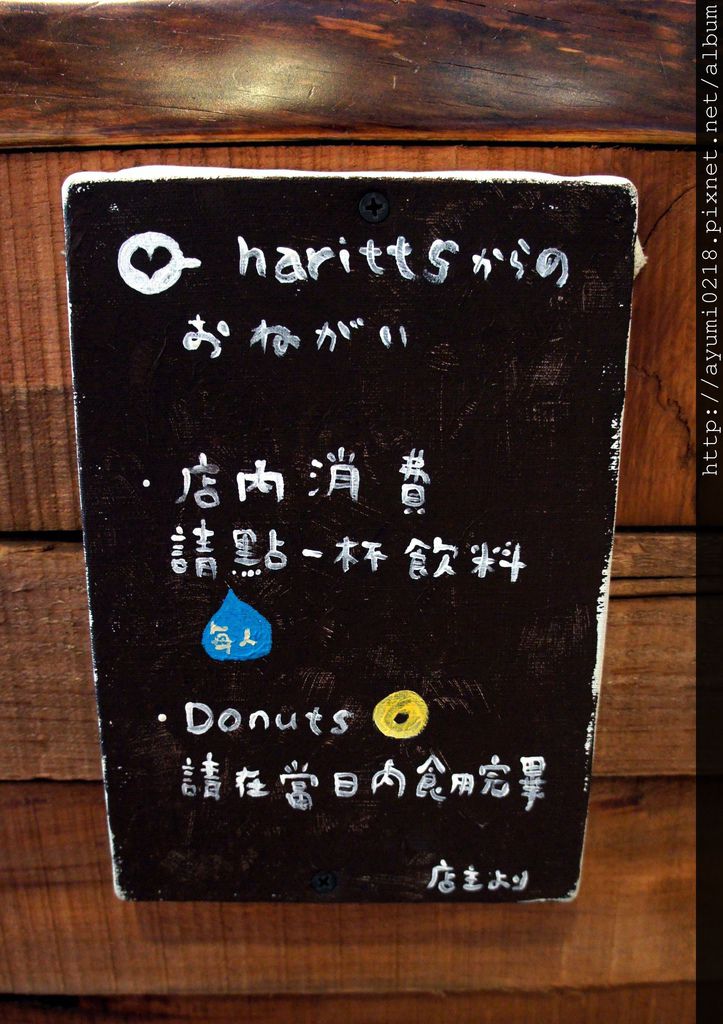 harittsからの
おねがい
・店內消費
請點一杯飲料
每人
・Donuts
請在當日內食用完畢
店主より
http://ayumi0218.pixnet.net/album